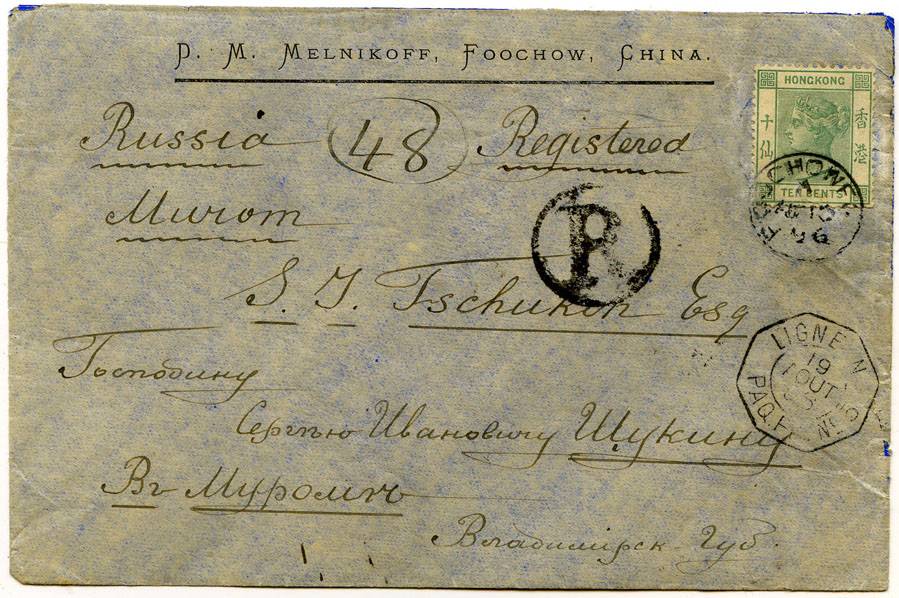 D. M. MELNIKOFF, FOOCHOW, CHINA.
HONGKONG
十仙
香港
TEN CENTS
Russia 48 Registered
Murom
R
S. J. Tschukin Esq
LIGNE N
19
AOUT
PAQ. F
Господину
Сергѣю Ивановичу Щукину
Въ Муромъ
Владимірск Губ.